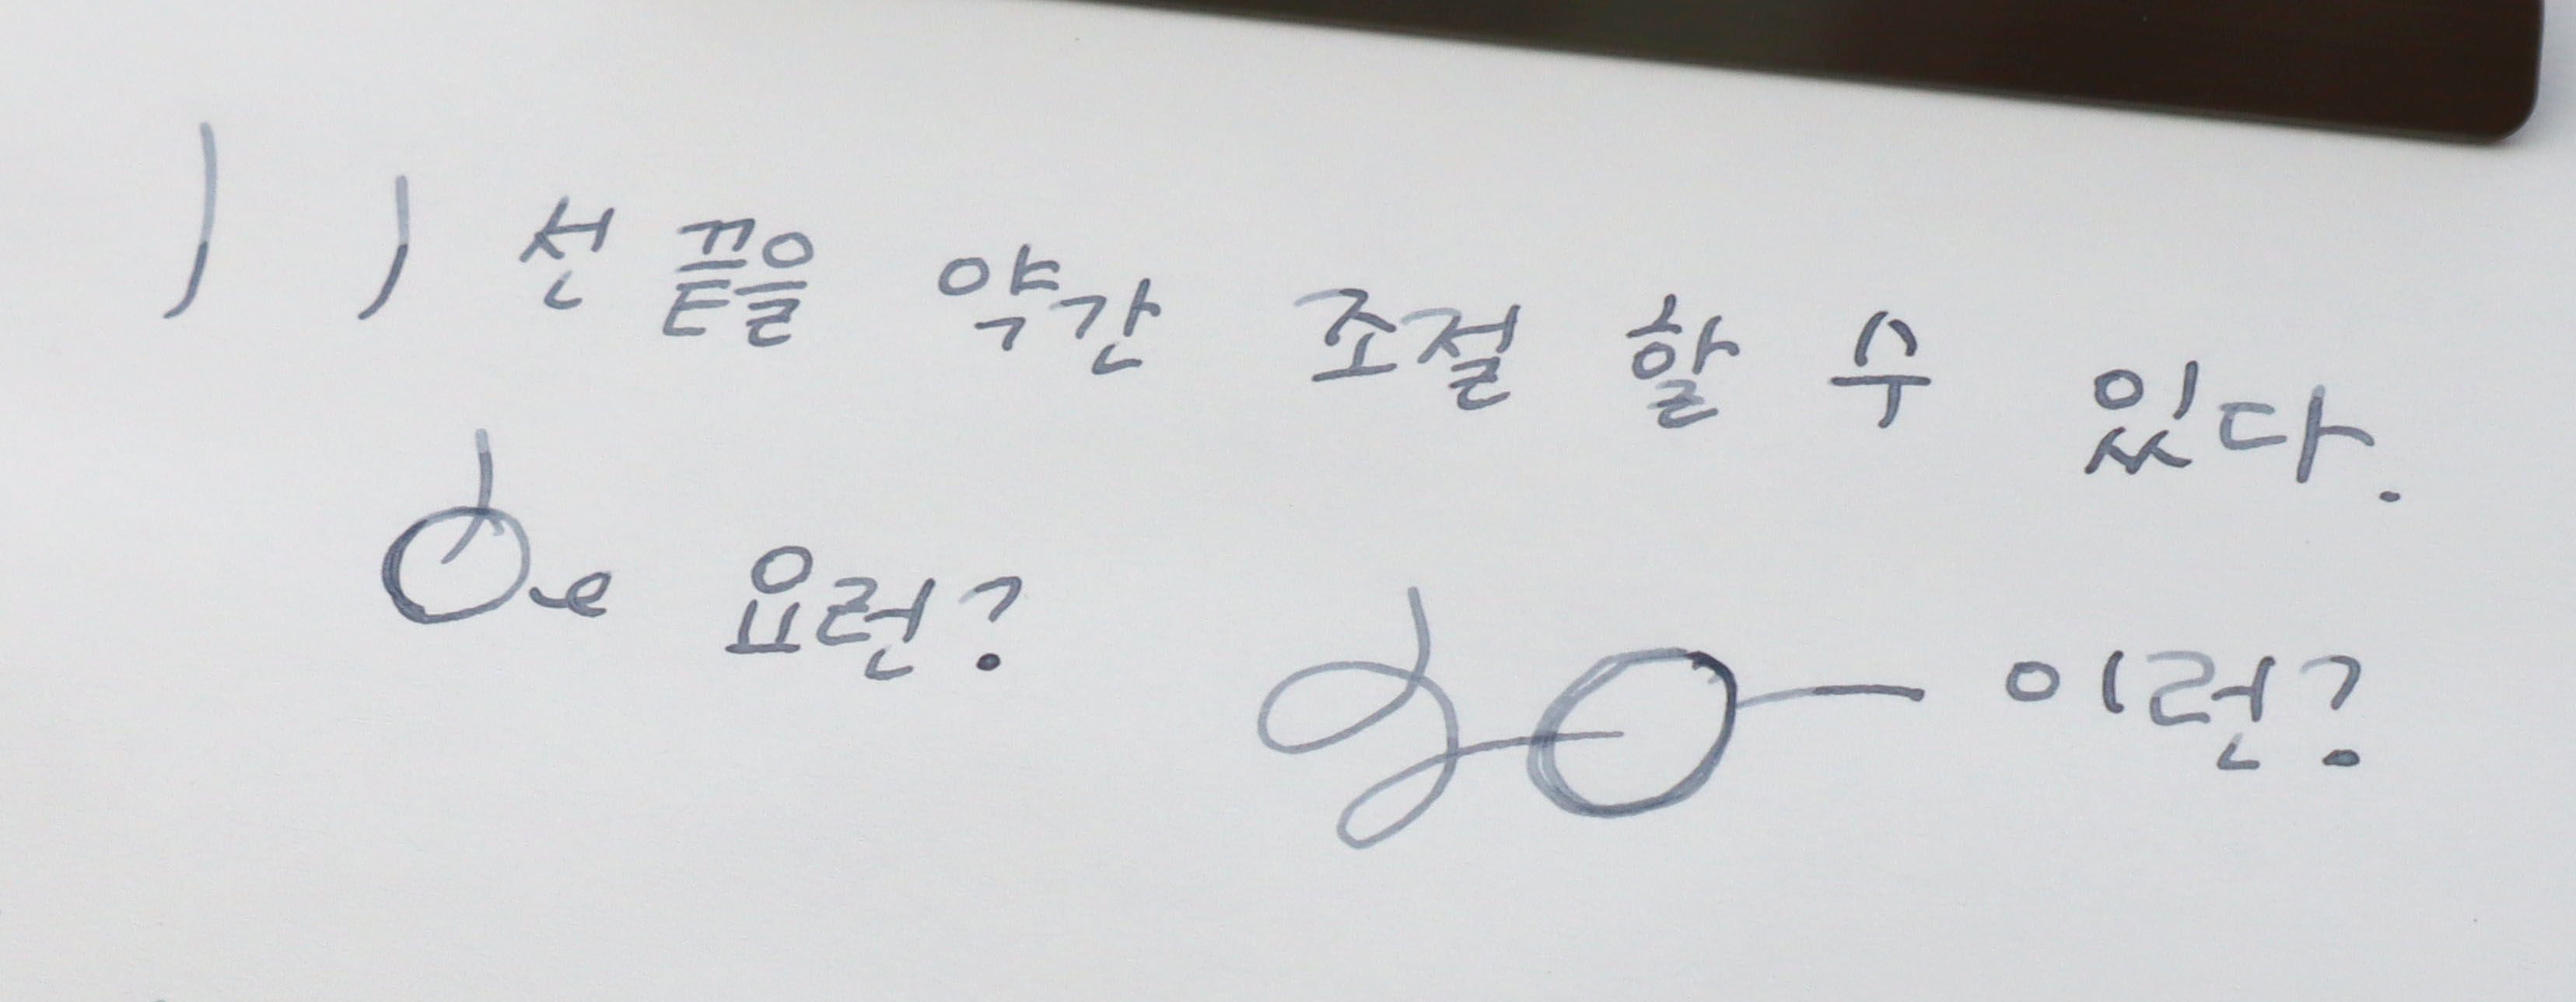 선 끝을 약간 조절 할 수 있다.
요런?
이런?